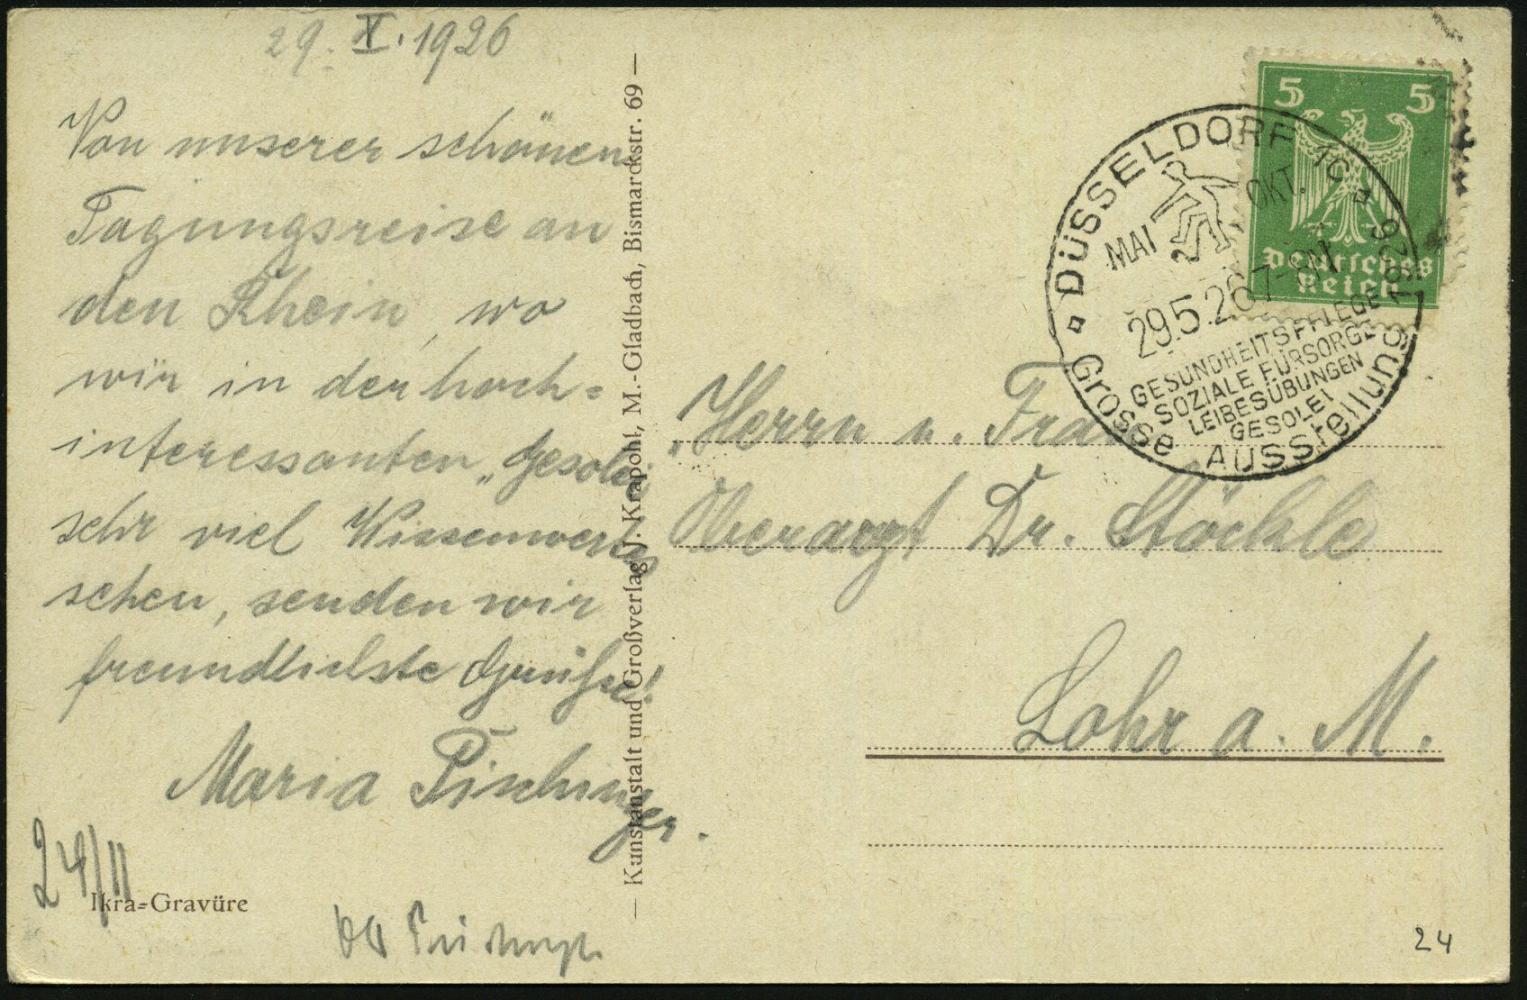 29. V. 1926
Von unserer schönen
Tagungsreise an
den Rhein, wo
wir in der hoch=
interessanten „Gesolei
sehr viel Wissenwertes
sehen, senden wir
freundlichste Grüße!
Maria Pischinger.
24/II
Ikra=Gravüre
— Kunstanstalt und Großverlag J. Krapohl, M.-Gladbach, Bismarckstr. 69 —
5 5
Deutsches
Reich
DÜSSELDORF 10
MAI OKT. 1926
29.5.26 7-8 N
GESUNDHEITSPFLEGE
SOZIALE FÜRSORGE
LEIBESÜBUNGEN
GESOLEI
Grosse AUSStellung
„Herrn u. Frau
Oberarzt Dr. Stöckle
Lohr a. M.
24